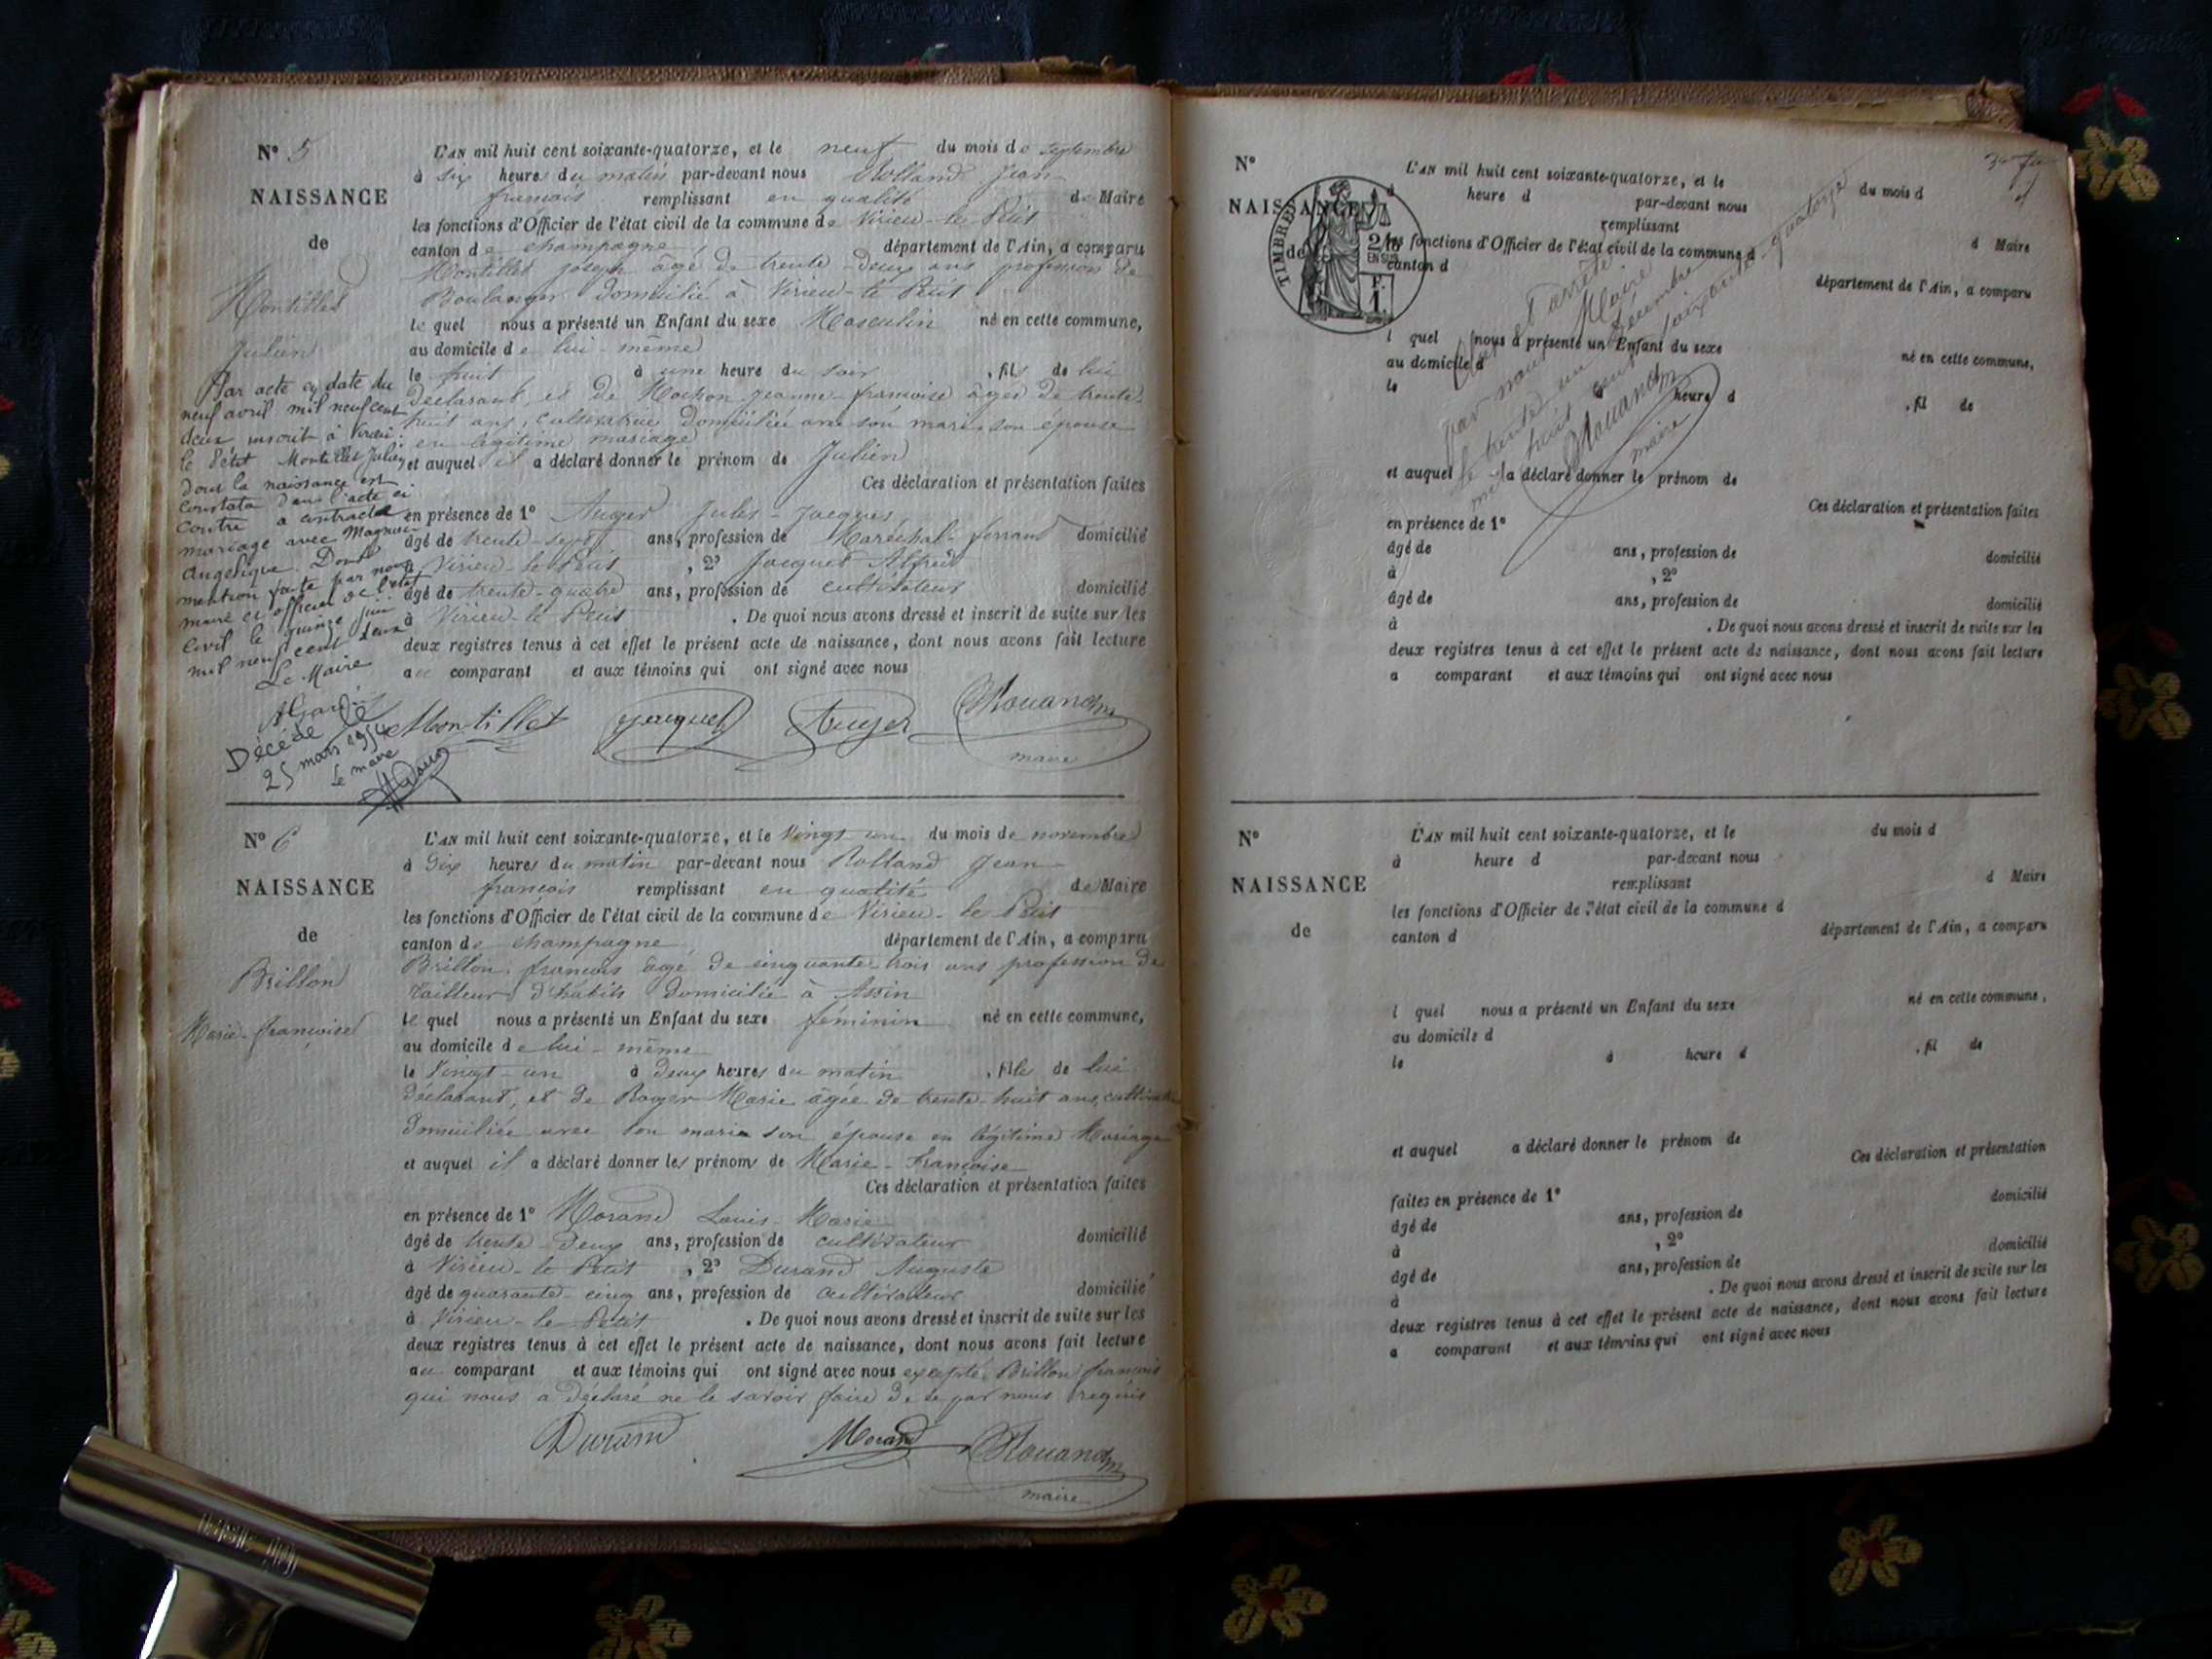 N° 5
NAISSANCE
de
Montillet
Julien
L'AN mil huit cent soixante-quatorze, et le neuf du mois de septembre
à six heures du matin par-devant nous Rolland Jean
françois remplissant en qualité de Maire
les fonctions d'Officier de l'état civil de la commune de Virieu-le-Petit
canton de champagne, département de l'Ain, a comparu
Montillet Joseph âgé de trente-deux ans profession de
Boulanger domicilié à Virieu-le-Petit
lequel nous a présenté un Enfant du sexe Masculin né en cette commune,
au domicile de lui-même
le huit à une heure du soir, fils de lui
déclarant, et de Mochon Jeanne-françoise âgée de trente-
huit ans, cultivatrice domiciliée avec son mari, son épouse
en légitime mariage
et auquel il a déclaré donner le prénom de Julien
Ces déclaration et présentation faites
en présence de 1° Auger Jules Jacques
âgé de trente-sept ans, profession de Maréchal-ferrant domicilié
à Virieu-le-Petit, 2° Jacquet Alfred
âgé de trente-quatre ans, profession de cultivateur domicilié
à Virieu-le-Petit. De quoi nous avons dressé et inscrit de suite sur les
deux registres tenus à cet effet le présent acte de naissance, dont nous avons fait lecture
au comparant et aux témoins qui ont signé avec nous
Par acte en date du
neuf avril mil neuf cent
deux inscrit à Virieu
le Petit Montillet Julien
dont la naissance est
constatée dans l'acte ci
contre a contracté
mariage avec Magnin
Angélique. Dont
mention faite par nous
maire et officier de l'état
civil le quinze juin
mil neuf cent deux
Le Maire
Décédé le
25 mars 1954
Le maire
Montillet Jacquet Auger Rolland
maire
N° 6
NAISSANCE
de
Brillon
Marie-françoise
L'AN mil huit cent soixante-quatorze, et le vingt un du mois de novembre
à dix heures du matin par-devant nous Rolland Jean
françois remplissant en qualité de Maire
les fonctions d'Officier de l'état civil de la commune de Virieu-le-Petit
canton de champagne département de l'Ain, a comparu
Brillon françois âgé de cinquante-trois ans profession de
Tailleur d'habits domicilié à Assin
lequel nous a présenté un Enfant du sexe féminin né en cette commune,
au domicile de lui-même
le Vingt-un à deux heures du matin, fille de lui
déclarant, et de Roger Marie âgée de trente-huit ans,
domiciliée avec son mari son épouse en légitime Mariage
et auquel il a déclaré donner les prénoms de Marie-Françoise
Ces déclaration et présentation faites
en présence de 1° Morand Louis-Marie
âgé de trente-deux ans, profession de cultivateur domicilié
à Virieu-le-Petit, 2° Durand Auguste
âgé de quarante-cinq ans, profession de cultivateur domicilié
à Virieu-le-Petit. De quoi nous avons dressé et inscrit de suite sur les
deux registres tenus à cet effet le présent acte de naissance, dont nous avons fait lecture
au comparant et aux témoins qui ont signé avec nous excepté Brillon françois
qui nous a déclaré ne le savoir faire de ce par nous requis
Durand Morand
maire
N°
NAISSANCE
de
TIMBRE
2/10
EN SUS
F.
1.
L'AN mil huit cent soixante-quatorze, et le du mois d
à heure d par-devant nous
remplissant d Maire
les fonctions d'Officier de l'état civil de la commune d
canton d département de l'Ain, a comparu
l quel nous a présenté un Enfant du sexe né en cette commune,
au domicile d
le à heure d , fil de
et auquel a déclaré donner le prénom de
Ces déclaration et présentation faites
en présence de 1°
âgé de ans, profession de domicilié
à , 2°
âgé de ans, profession de domicilié
à . De quoi nous avons dressé et inscrit de suite sur les
deux registres tenus à cet effet le présent acte de naissance, dont nous avons fait lecture
a comparant et aux témoins qui ont signé avec nous
Clos et arrêté
par nous Maire
le trente un décembre
mil huit cent soixante-quatorze
maire
N°
NAISSANCE
de
L'AN mil huit cent soixante-quatorze, et le du mois d
à heure d par-devant nous
remplissant d Maire
les fonctions d'Officier de l'état civil de la commune d
canton d département de l'Ain, a comparu
l quel nous a présenté un Enfant du sexe né en cette commune,
au domicile d
le à heure d , fil de
et auquel a déclaré donner le prénom de
Ces déclaration et présentation
faites en présence de 1° domicilié
âgé de ans, profession de
à , 2° domicilié
âgé de ans, profession de
à . De quoi nous avons dressé et inscrit de suite sur les
deux registres tenus à cet effet le présent acte de naissance, dont nous avons fait lecture
a comparant et aux témoins qui ont signé avec nous